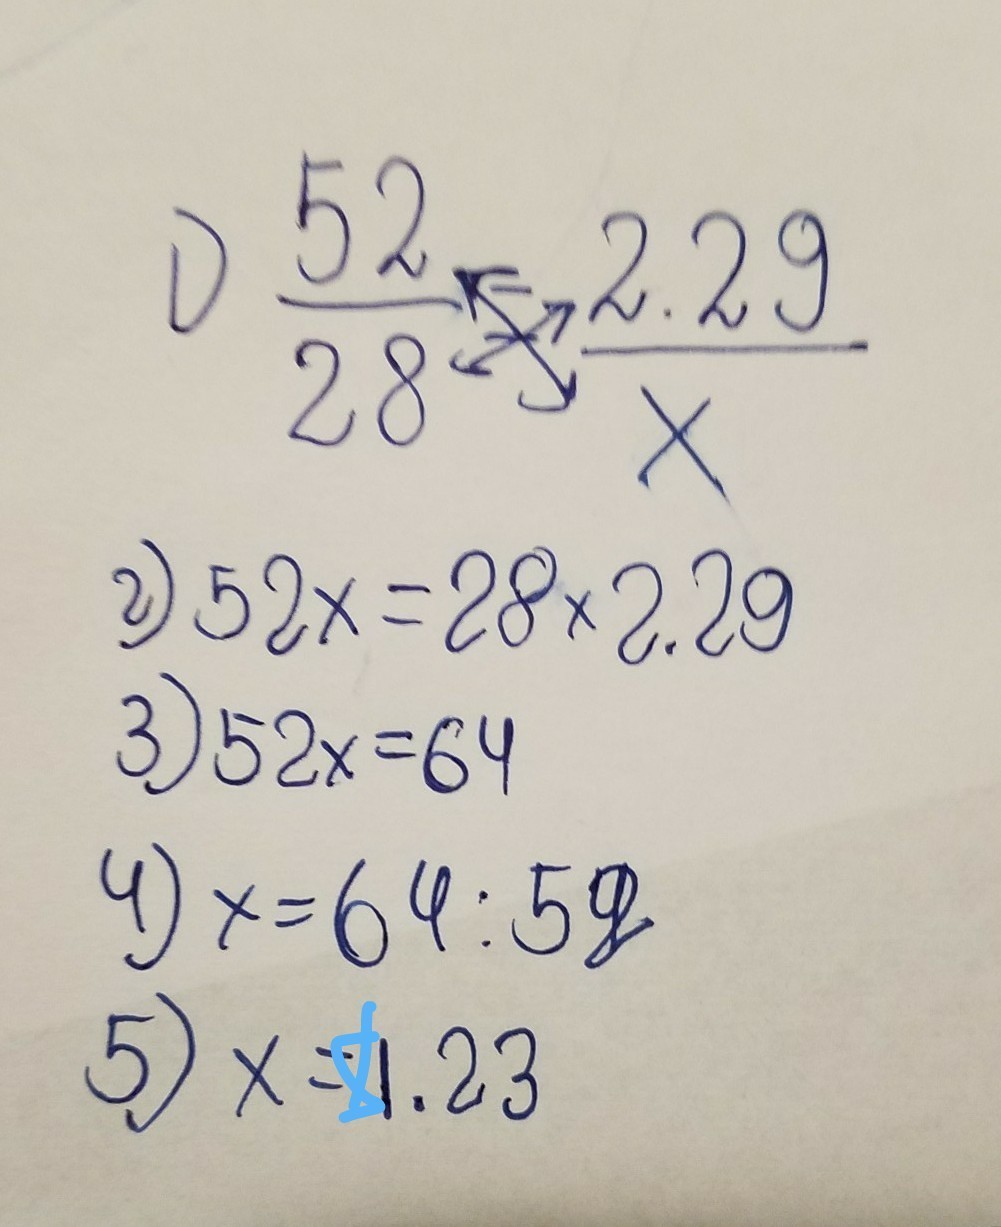 1) 52/28 = 2.29/x
2) 52x = 28 × 2.29
3) 52x = 64
4) x = 64 : 52
5) x = $1.23